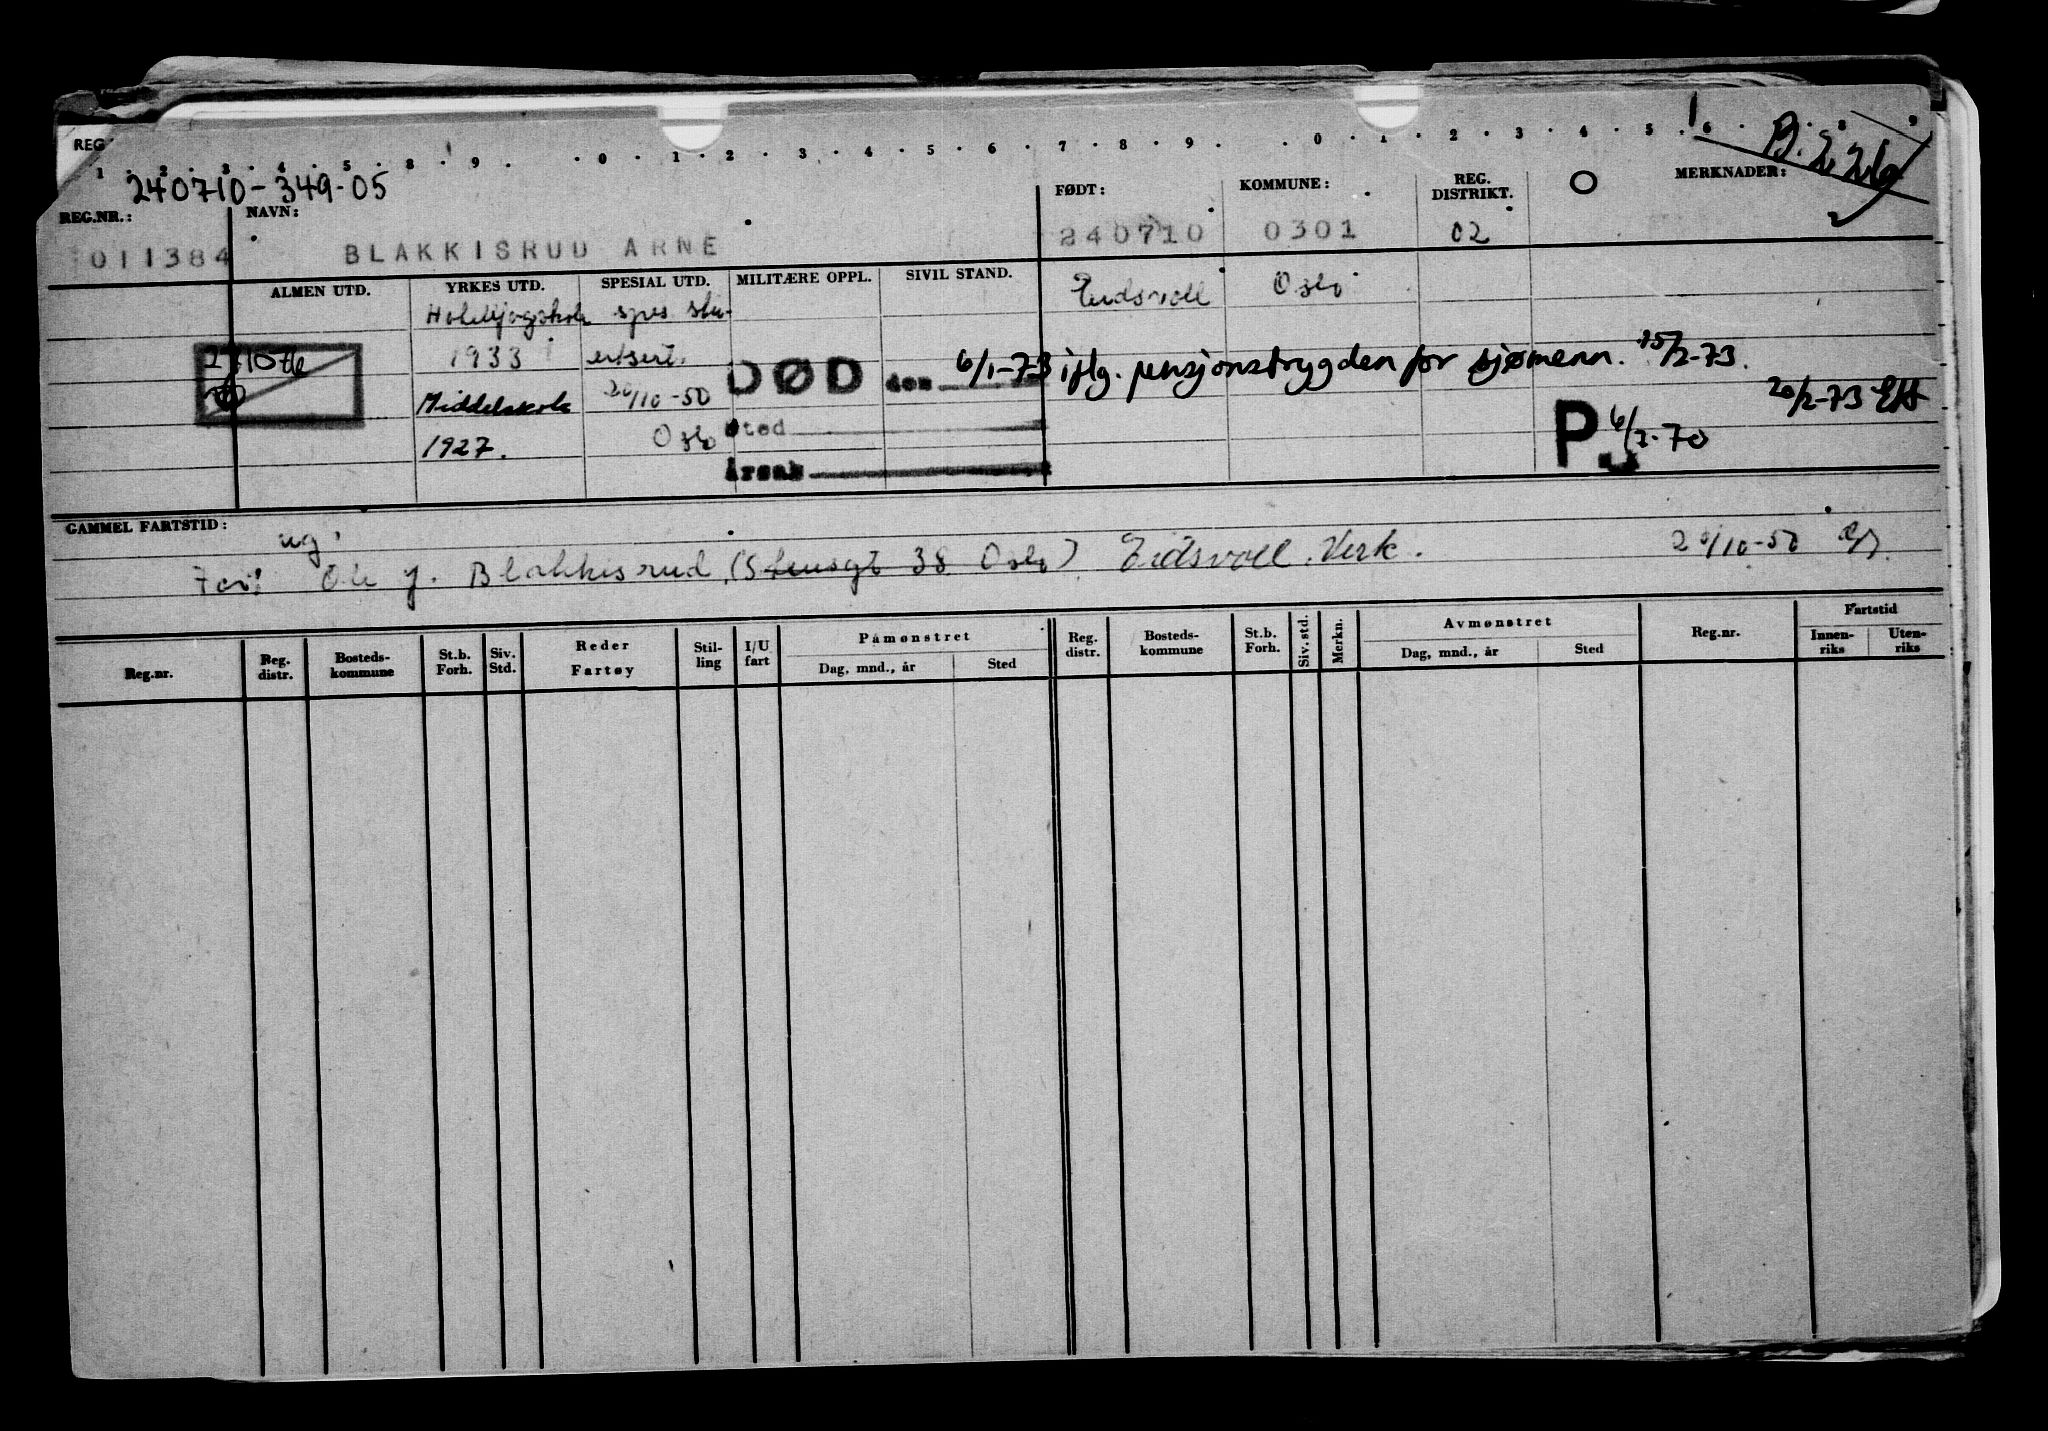 REG
1 2 3 4 5 8 9 0 1 2 3 4 5 6 7 8 9 0 1 2 3 4 5 6 8 9
240710-349-05
B.S. 26
REG.NR.: NAVN: FØDT: KOMMUNE: REG. DISTRIKT. O MERKNADER:
011384 BLAKKISRUD ARNE 240710 0301 02
ALMEN UTD. YRKES UTD. SPESIAL UTD. MILITÆRE OPPL. SIVIL STAND. Eidsvoll Oslo
1933 ertsert.
DØD den 6/1-73 iflg. pensjonstrygden for sjømenn. 15/2-73.
Middelskole 20/10-50
20/2-73
1927. Oslo Sted
P 6/7-70
Årsak
GAMMEL FARTSTID:
ug.
Far: Ole J. Blakkisrud (Stensgt 38 Oslo) Eidsvoll Verk. 20/10-50
Reg.nr. Reg. distr. Bosteds- kommune St.b. Forh. Siv. Std. Reder Fartøy Stil- ling I/U fart Påmønstret Dag, mnd., år Sted Reg. distr. Bosteds- kommune St.b. Forh. Siv. std. Merkn. Avmønstret Dag, mnd., år Sted Reg.nr. Fartstid Innen- riks Uten- riks